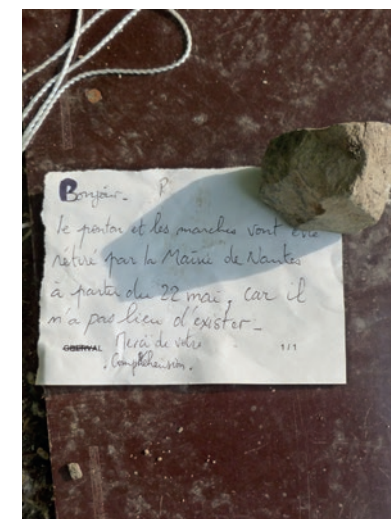 Bonjour_ P
Le ponton et les marches vont être
rétiré par la Mairie de Nantes
à partir du 22 mai, car il
n'a pas lieu d'exister_
Merci de votre 1/1
Compréhension.